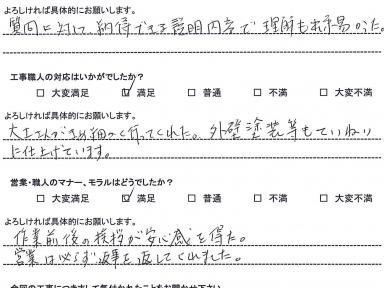 よろしければ具体的にお願いします。
質問に対して納得できる説明内容で理解も容易だった。
工事職人の対応はいかがでしたか？
□ 大変満足 ☑ 満足 □ 普通 □ 不満 □ 大変不満
よろしければ具体的にお願いします。
大工さんがきめ細かく行ってくれた。外壁塗装等もていねい
に仕上げています。
営業・職人のマナー、モラルはどうでしたか？
□ 大変満足 ☑ 満足 □ 普通 □ 不満 □ 大変不満
よろしければ具体的にお願いします。
作業前後の挨拶が安心感を得た。
営業は必ず返事を返してくれました。
今回の工事につきまして気付かれたことをお聞かせ下さい